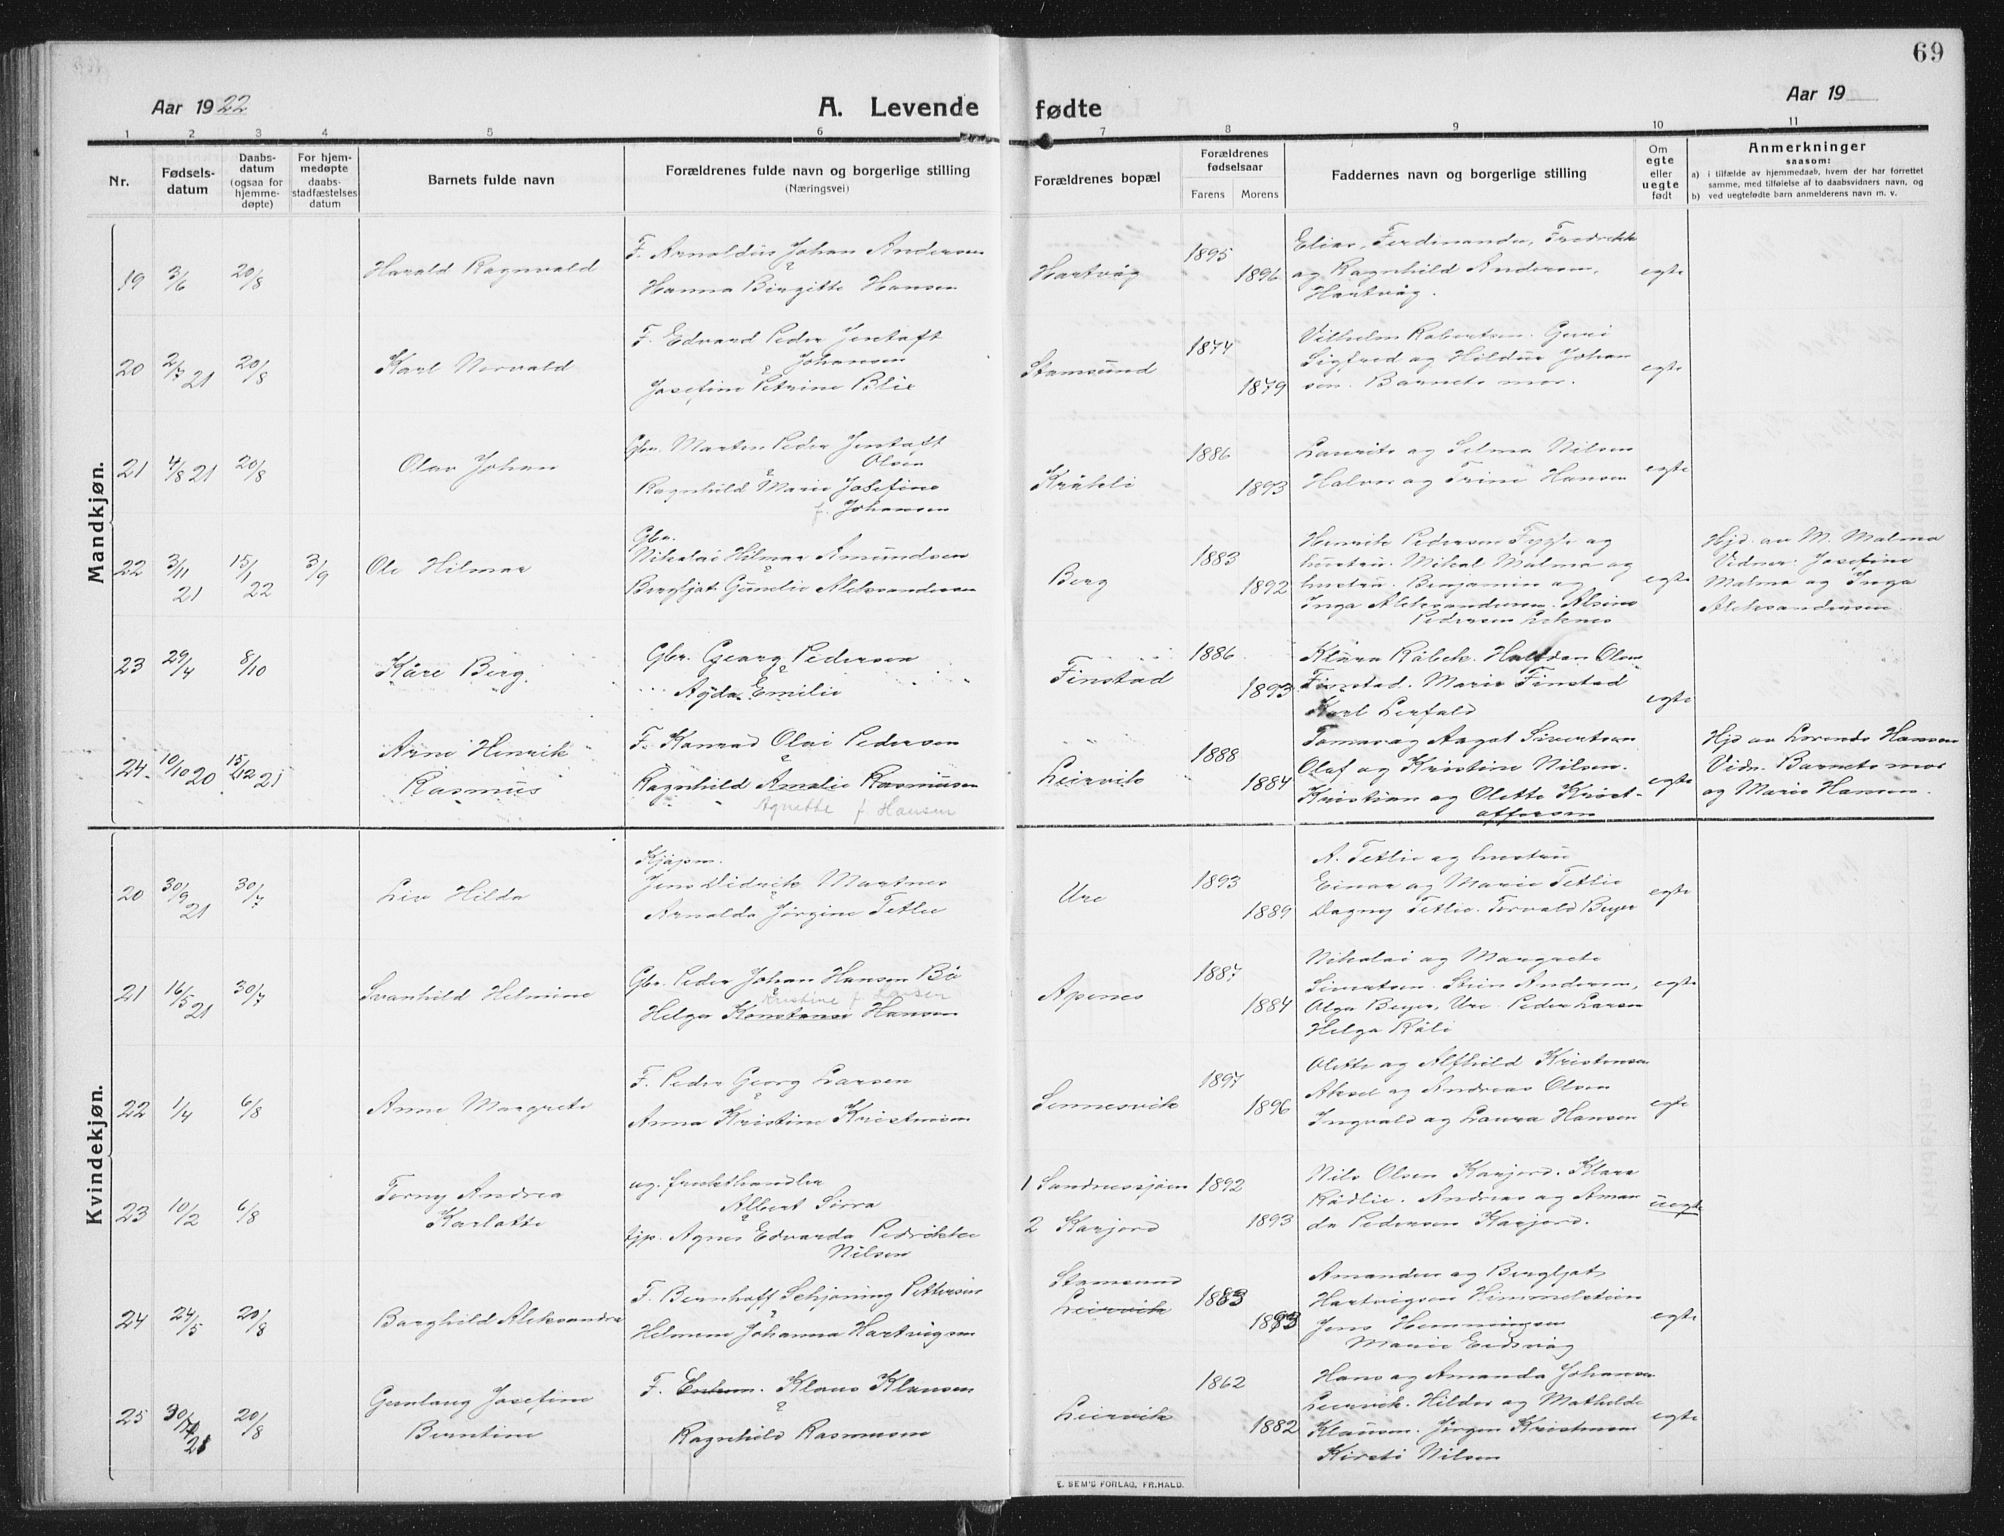 69
Aar 1922
A. Levende fødte
Aar 19
1 2 3 4 5 6 7 8 9 10 11
Nr.
Fødsels-
datum
Daabs-
datum
(ogsaa for
hjemme-
døpte)
For hjem-
medøpte
daabs-
stadfæstelses
datum
Barnets fulde navn
Forældrenes fulde navn og borgerlige stilling
(Næringsvei)
Forældrenes bopæl
Forældrenes
fødselsaar
Farens Morens
Faddernes navn og borgerlige stilling
Om
egte
eller
uegte
født
Anmerkninger
saasom:
a) i tilfælde av hjemmedaab, hvem der har forrettet
samme, med tilføielse af to daabsvidners navn, og
b) ved uegtefødte barn anmelderens navn m. v.
Mandkjøn.
19 3/6 20/8
Harald Ragnvald
F. Arnoldus Johan Andersen
Hanna Birgitte Hansen
Hartvåg
1895
1896
Elias, Ferdinanda, Fredrikke
og Ragnhild Andersen,
Hartvåg.
egte
20 2/7 21 20/8
Karl Norvald
F. Edvard Peder Jentoft
Johansen
Josefine Petrine Blix
Stamsund
1874
1879
Vilhelm Robertsen. Guri
Sigfred og Hildur Johan
sen. Barnets mor.
egte
21 4/8 21 20/8
Olav Johan
Gbr. Marten Peder Jentoft
Olsen
Ragnhild Marie Josefine
f. Johansen
Kråkli
1886
1893
Laurits og Selma Nilsen
Halvor og Trine Hansen
egte
22 3/11 21 15/1 22 3/9
Ole Hilmar
Gbr.
Nikolai Hilmar Amundsen
Bergljot Gunelie Aleksandersen
Berg
1883
1892
Henrik Pedersen Fygle og
hustru. Mikal Malma og
hustru. Benjamin og
Inga Aleksandersen. Alsine
Pedersen Leknes
egte
Hjd. av M. Malma
Vidner: Josefine
Malma og Inga
Aleksandersen.
23 29/4 8/10
Kåre Berg.
Gbr. Georg Pedersen
Agda Emilie
Finstad
1886
1893
Klara Råbek. Halfdan Olsen
Finstad. Marie Finstad
Karl Lerfald
egte
24 10/10 20 15/12 21
Arne Henrik
Rasmus
F. Konrad Olai Pedersen
Ragnhild Amalie Rasmussen
Agnette f. Hansen
Leirvik
1888
1884
Tomas og Aagot Sivertsen
Olaf og Kristine Nilsen.
Kristian og Olette Krist-
offersen
egte
Hjd av Lorents Hansen
Vidn. Barnets mor
og Marie Hansen.
Kvindekjøn.
20 30/9 21 30/7
Liv Hilda
Kjøpm.
Jens Didrik Martnes
Arnolda Jørgine Tetlie
Ure
1893
1889
A. Tetlie og hustru
Einar og Marie Tetlie
Dagny Tetlie. Torvald Beyer
egte
21 16/5 21 30/7
Svanhild Helmine
Gbr. Peder Johan Hansen Bø
Kristine f. Larsen
Helga Konstanse Hansen
Apenes
1887
1884
Nikolai og Margrete
Sivertsen. Stein Andersen,
Olga Beyer, Ure. Peder Larsen
Helga Råli
egte
22 1/4 6/8
Anne Margrete
F. Peder Georg Larsen
Anna Kristine Kristensen
Sennesvik
1897
1896
Olette og Alfhild Kristensen
Aksel og Andreas Olsen
Ingvald og Laura Hansen
egte
23 10/2 6/8
Torny Andrea
Karlotte
ug. frukthandler
Albert Sørra
pp. Agnes Edvarda Pedrikke
Nilsen
1 Sandnessjøen
2 Karjord
1892
1893
Nils Olsen Karjord. Klara
Rødlie. Andreas og Aman
da Pedersen Karjord.
uegte
24 24/5 20/8
Borghild Aleksandra
F. Bernhoff Schjøning Pettersen
Helmine Johanna Hartvigsen
Stamsund
Leirvik
1883
1893
Amandus og Bergljot
Hartvigsen Himmelstein
Jens Hemmingsen
Marie Eidsvåg
egte
25 20/8
Gunlaug Josefine
Berntine
F. Enkem. Klaus Klausen
Ragnhild Rasmussen
Leirvik
1862
1882
Hans og Amanda Johansen
Leirvik. Hildor og Mathilde
Klausen. Jørgen Kristensen
Kirsti Nilsen
egte
E. SEM'S FORLAG, FR.HALD.